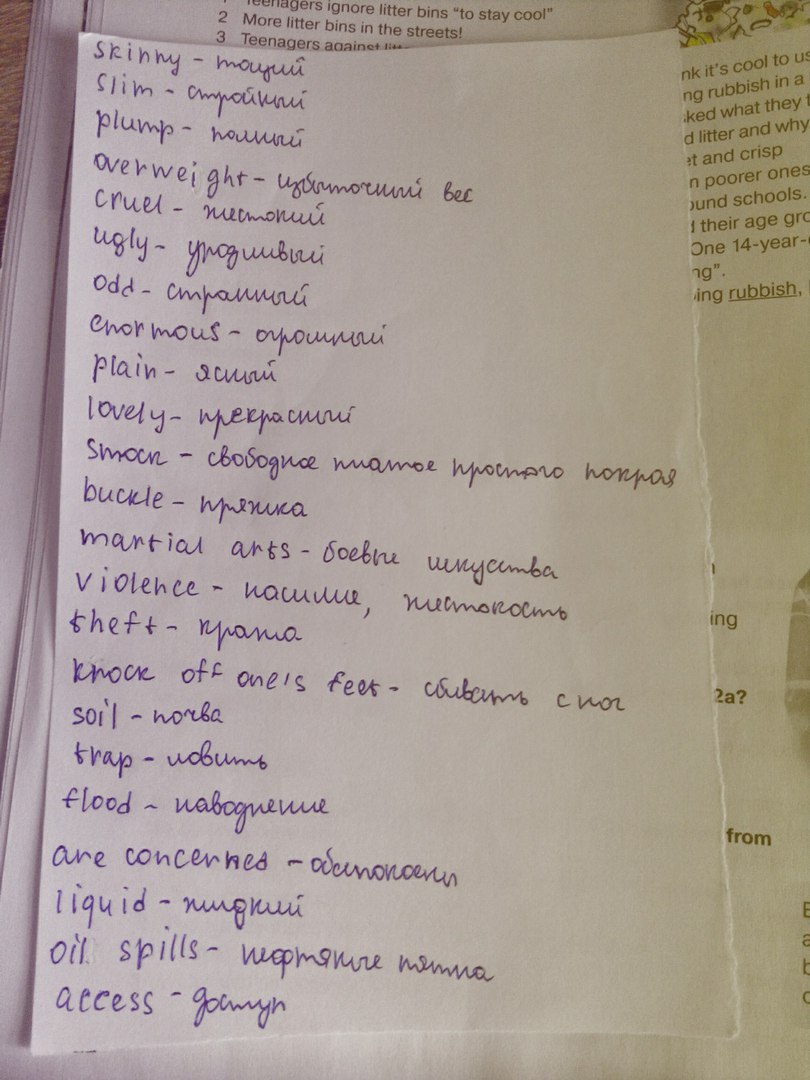 Teenagers ignore litter bins “to stay cool”
2 More litter bins in the streets!
3 Teenagers against
skinny - тощий
slim - стройный
plump - полный
overweight - избыточный вес
cruel - жестокий
ugly - уродливый
odd - странный
enormous - огромный
plain - ясный
lovely - прекрасный
smock - свободное платое простого покроя
buckle - пряжка
martial arts - боевые искусства
violence - насилие, жестокость
theft - кража
knock off one's feet - сбивать с ног
soil - почва
trap - ловить
flood - наводнение
are concerned - обеспокоены
liquid - жидкий
oil spills - нефтяные пятна
access - доступ
nk it's cool to us
ng rubbish in a
ked what they t
d litter and why
et and crisp
n poorer ones
ound schools.
d their age gro
One 14-year-
ng”.
ing rubbish,
ing
2a?
from